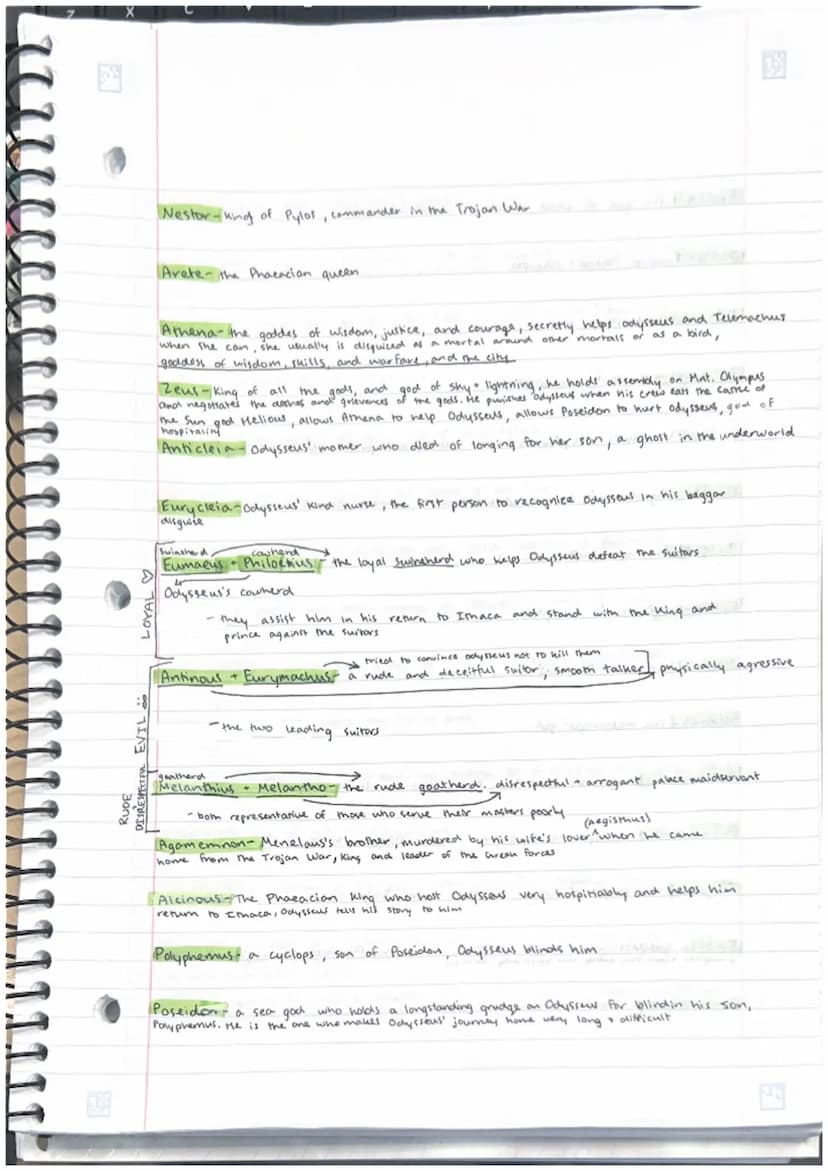 Z X C V
Nestor- King of Pylos, commander in the Trojan War
Arete- the Phaeacian queen
Athena- the goddes of wisdom, justice, and courage, secretly helps odysseus and Telemachus
when she can, she usually is disguised as a mortal around other mortals or as a bird,
goddess of wisdom, skills, and warfare, and the city
Zeus- King of all the gods, and god of sky + lightning, he holds assembly on Mnt. Olympus
and negotiates the desires and grievences of the gods. He punishes Odysseus when his crew eats the cattle of
the Sun god Helious, allows Athena to help Odysseus, allows Poseidon to hurt odysseus, god of
hospitality
Anticleia- Odysseus' mother who died of longing for her son, a ghost in the underworld
Eurycleia- Odysseus' kind nurse, the first person to recognize Odysseus in his beggar
disguise
swineherd cowherd
Eumaeus + Philoetius- the loyal swineherd who helps Odysseus defeat the suitors
Odysseus's cowherd
LOYAL ♡
- they assist him in his return to Ithaca and stand with the King and
prince against the suitors
tried to convince odysseus not to kill them
Antinous + Eurymachus- a rude and deceitful suitor, smooth talker, physically agressive
EVIL
- the two leading suitors
goatherd
Melanthius + Melantho- the rude goatherd. disrespectful + arrogant palace maidservant
RUDE
DISRESPECTFUL
- both representative of those who serve their masters poorly
(aegisthus)
Agamemnon- Menelaus's brother, murdered by his wife's lover ^ when he came
home from the Trojan War, King and leader of the Greek forces
Alcinous- The Phaeacian King who host Odysseus very hospitiabby and helps him
return to Ithaca, Odysseus tells his story to him
Polyphemus- a cyclops, son of Poseidon, Odysseus blinds him
Poseidon- a sea god who holds a longstanding grudge on Odysseus for blindin his son,
Polyphemus. He is the one who makes Odysseus' journey home very long + difficult